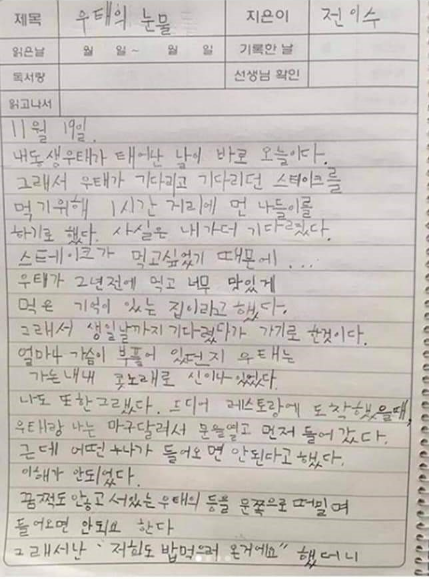 제목 우태의 눈물 지은이 전이수
읽은날 월 일 ~ 월 일 기록한 날
독서량 선생님 확인
읽고나서
11월 19일.
내동생우태가 태어난 날이 바로 오늘이다.
그래서 우태가 기다리고 기다리던 스테이크를
먹기위해 1시간 거리에 먼 나들이를
하기로 했다. 사실은 내가더 기다렸다.
스테이크가 먹고싶었기 때문에...
우태가 2년전에 먹고 너무 맛있게
먹은 기억이 있는 집이라고 했다.
그래서 생일날까지 기다렸다가 가기로 한것이다.
얼마나 가슴이 부풀어 있던지 우태는
가는내내 콧노래로 신이나있었다.
나도 또한그랬다. 드디어 레스토랑에 도착했을때,
우태랑 나는 마구달려서 문을열고 먼저 들어 갔다.
근데 어떤 누나가 들어오면 안된다고 했다.
이해가 안되었다.
꿈쩍도안놓고 서있는 우태의 등을 문쪽으로 떠밀며
들어오면 안되요 한다
그래서난 "저희도 밥먹으러 온거에요" 했더니